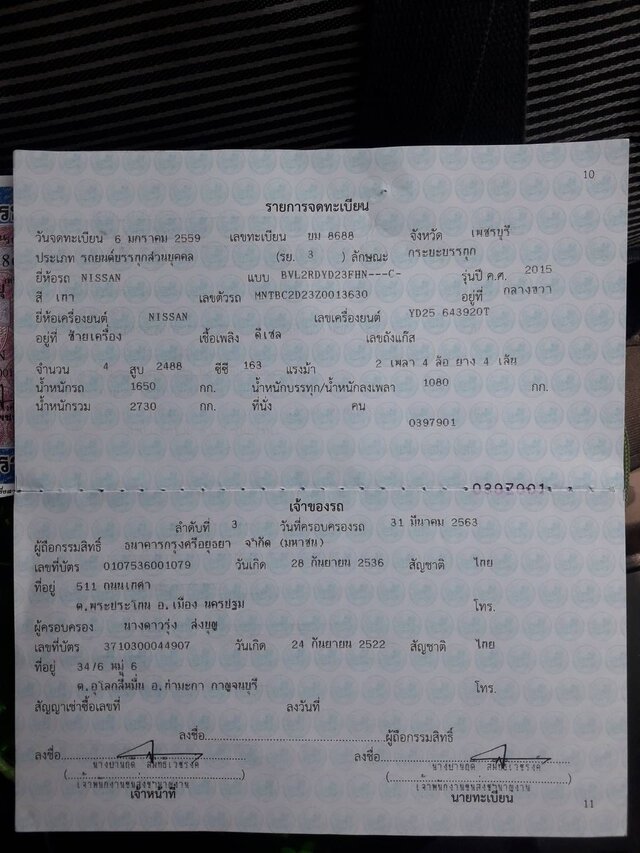 10
รายการจดทะเบียน
วันจดทะเบียน 6 มกราคม 2559 เลขทะเบียน ยม 8688 จังหวัด เพชรบุรี
ประเภท รถยนต์บรรทุกส่วนบุคคล (รย. 3 ) ลักษณะ กระบะบรรทุก
ยี่ห้อรถ NISSAN แบบ BVL2RDYD23FHN---C- รุ่นปี ค.ศ. 2015
สี เทา เลขตัวรถ MNTBC2D23Z0013630 อยู่ที่ กลางขวา
ยี่ห้อเครื่องยนต์ NISSAN เลขเครื่องยนต์ YD25 643920T
อยู่ที่ ซ้ายเครื่อง เชื้อเพลิง ดีเซล เลขถังแก๊ส
จำนวน 4 สูบ 2488 ซีซี 163 แรงม้า 2 เพลา 4 ล้อ ยาง 4 เส้น
น้ำหนักรถ 1650 กก. น้ำหนักบรรทุก/น้ำหนักลงเพลา 1080 กก.
น้ำหนักรวม 2730 กก. ที่นั่ง คน
0397901
0397901
เจ้าของรถ
ลำดับที่ 3 วันที่ครอบครองรถ 31 มีนาคม 2563
ผู้ถือกรรมสิทธิ์ ธนาคารกรุงศรีอยุธยา จำกัด (มหาชน)
เลขที่บัตร 0107536001079 วันเกิด 28 กันยายน 2536 สัญชาติ ไทย
ที่อยู่ 511 ถนนเทศา
ต.พระประโทน อ.เมือง นครปฐม โทร.
ผู้ครอบครอง นางดาวรุ่ง ส่งบุญ
เลขที่บัตร 3710300044907 วันเกิด 24 กันยายน 2522 สัญชาติ ไทย
ที่อยู่ 34/6 หมู่ 6
ต.อุโลกสี่หมื่น อ.ท่ามะกา กาญจนบุรี โทร.
สัญญาเช่าซื้อเลขที่ ลงวันที่
ลงชื่อ ผู้ถือกรรมสิทธิ์
ลงชื่อ ลงชื่อ
เจ้าพนักงานขนส่งชำนาญงาน เจ้าพนักงานขนส่งชำนาญงาน
เจ้าหน้าที่ นายทะเบียน
11